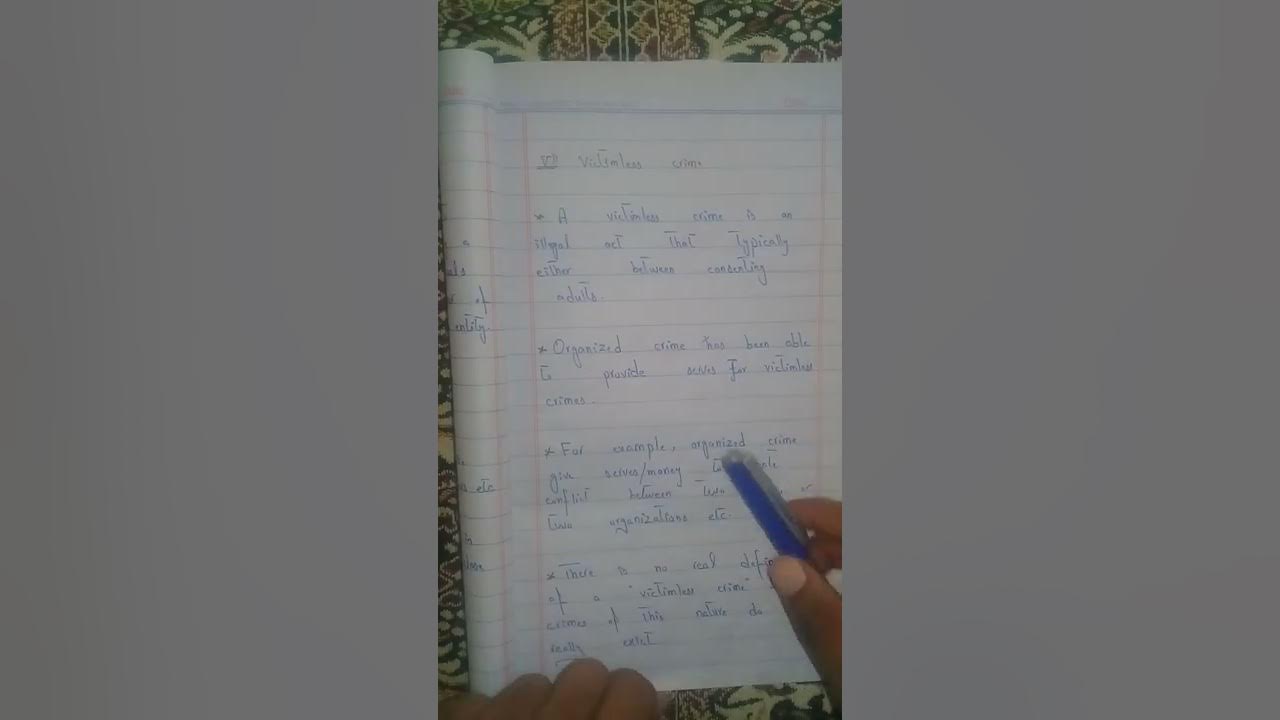 VI Victimless crime
* A victimless crime is an
illegal act that typically
either between consenting
adults.
* Organized crime has been able
to provide serves for victimless
crimes.
* For example, organized crime
give serves/money to
conflict between two or
two organizations etc.
* There is no real
of a "victimless crime"
crimes of this nature do
really exist
a
of
entity.
etc
in